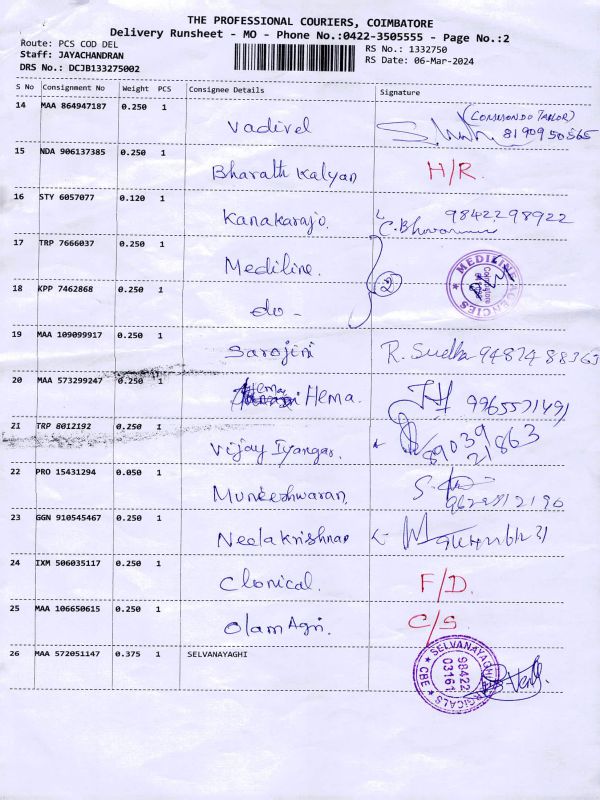 THE PROFESSIONAL COURIERS, COIMBATORE
Delivery Runsheet - MO - Phone No.:0422-3505555 - Page No.:2
Route: PCS COD DEL
RS No.: 1332750
Staff: JAYACHANDRAN
RS Date: 06-Mar-2024
DRS No.: DCJB133275002
S No Consignment No Weight PCS Consignee Details Signature
14 MAA 864947187 0.250 1 Vadivel
8190950565
15 NDA 906137385 0.250 1 Bharath Kalyan H/R.
16 STY 6057077 0.120 1 Kanakarajo. 9842298922
17 TRP 7666037 0.250 1 Mediline.
MEDILINE AGENCIES
18 KPP 7462868 0.250 1 do -
2
19 MAA 109099917 0.250 1 Sarojini R. Sudha 9487488363
20 MAA 573299247 0.250 1 Hema. 9965571491
21 TRP 8012192 0.250 1 Vijay Iyangar. 89039
21863
22 PRO 15431294 0.050 1 Muneeshwaran,
23 GGN 910545467 0.250 1 Neelakrishnan
24 IXM 506035117 0.250 1 Clonical. F/D.
25 MAA 106650615 0.250 1 Olam Agri. C/S
26 MAA 572051147 0.375 1 SELVANAYAGHI
SELVANAYAGHI SURGICALS CBE
98422
03161